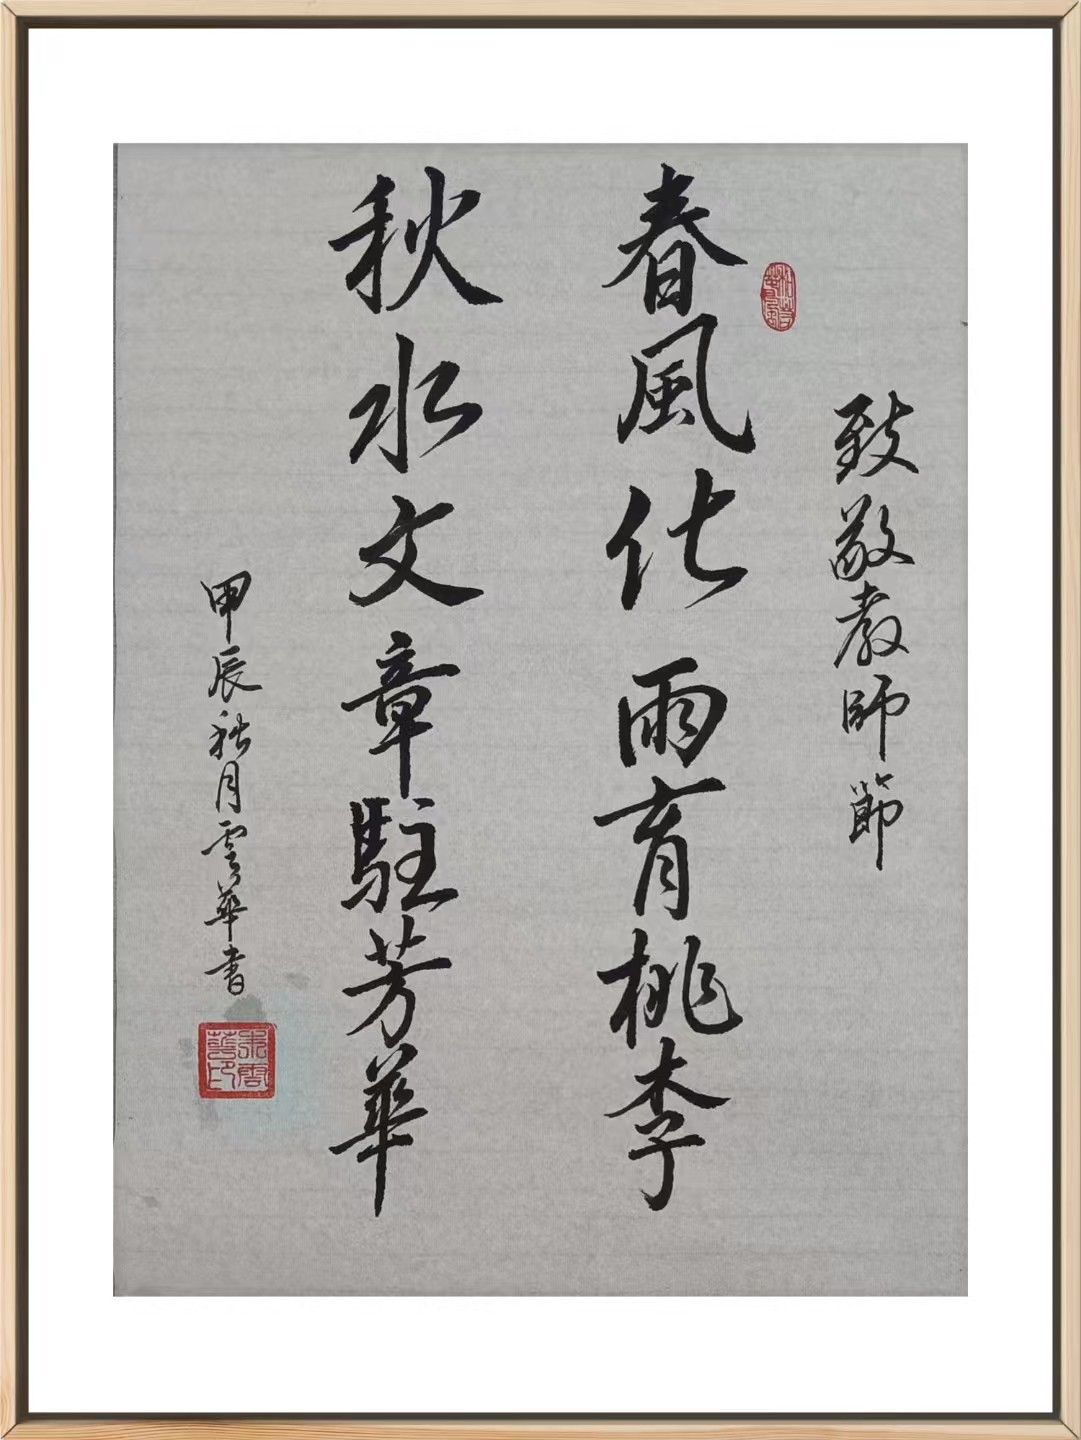 致敬教師節
春風化雨育桃李
秋水文章駐芳華
甲辰秋月雲華書